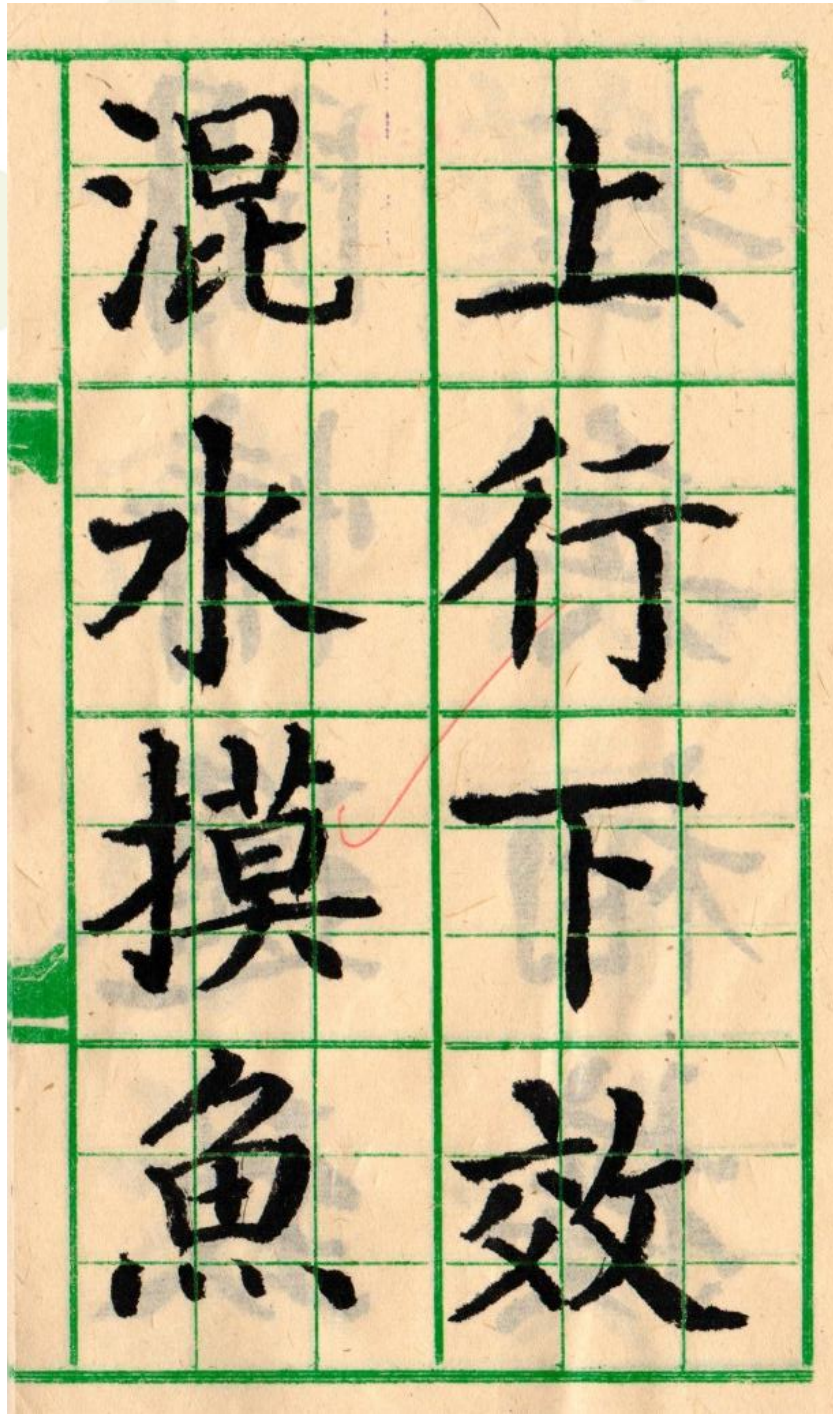 上行下效
混水摸魚